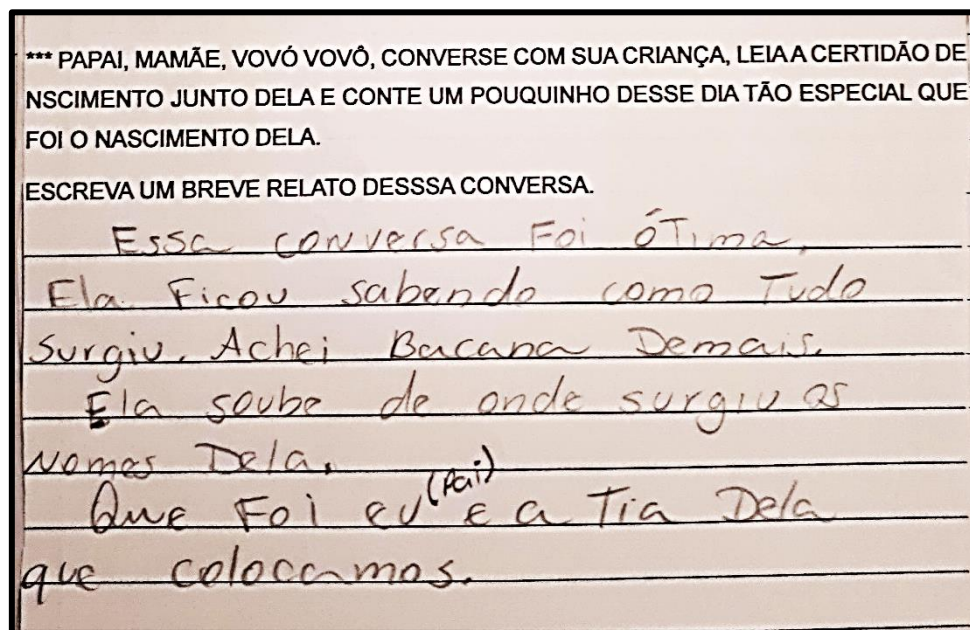 *** PAPAI, MAMÃE, VOVÓ VOVÔ, CONVERSE COM SUA CRIANÇA, LEIA A CERTIDÃO DE
NSCIMENTO JUNTO DELA E CONTE UM POUQUINHO DESSE DIA TÃO ESPECIAL QUE
FOI O NASCIMENTO DELA.
ESCREVA UM BREVE RELATO DESSSA CONVERSA.
Essa conversa Foi óTima,
Ela Ficou sabendo como Tudo
surgiu. Achei Bacana Demais.
Ela soube de onde surgiu os
Nomes Dela.
Que Foi eu (Pai) e a Tia Dela
que colocamos.